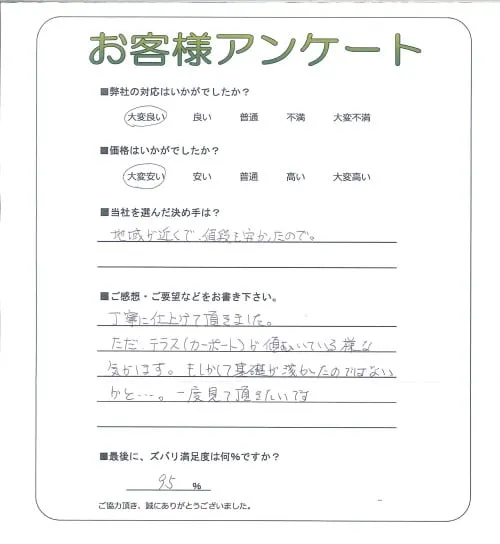 お客様アンケート
■弊社の対応はいかがでしたか？
大変良い 良い 普通 不満 大変不満
■価格はいかがでしたか？
大変安い 安い 普通 高い 大変高い
■当社を選んだ決め手は？
地域が近くで、値段も安かったので。
■ご感想・ご要望などをお書き下さい。
丁寧に仕上げて頂きました。
ただ、テラス(カーポート)が傾むいている様な
気がします。もしかして基礎が浅かったのではない
かと…。一度見て頂きたいです
■最後に、ズバリ満足度は何%ですか？
95 %
ご協力頂き、誠にありがとうございました。